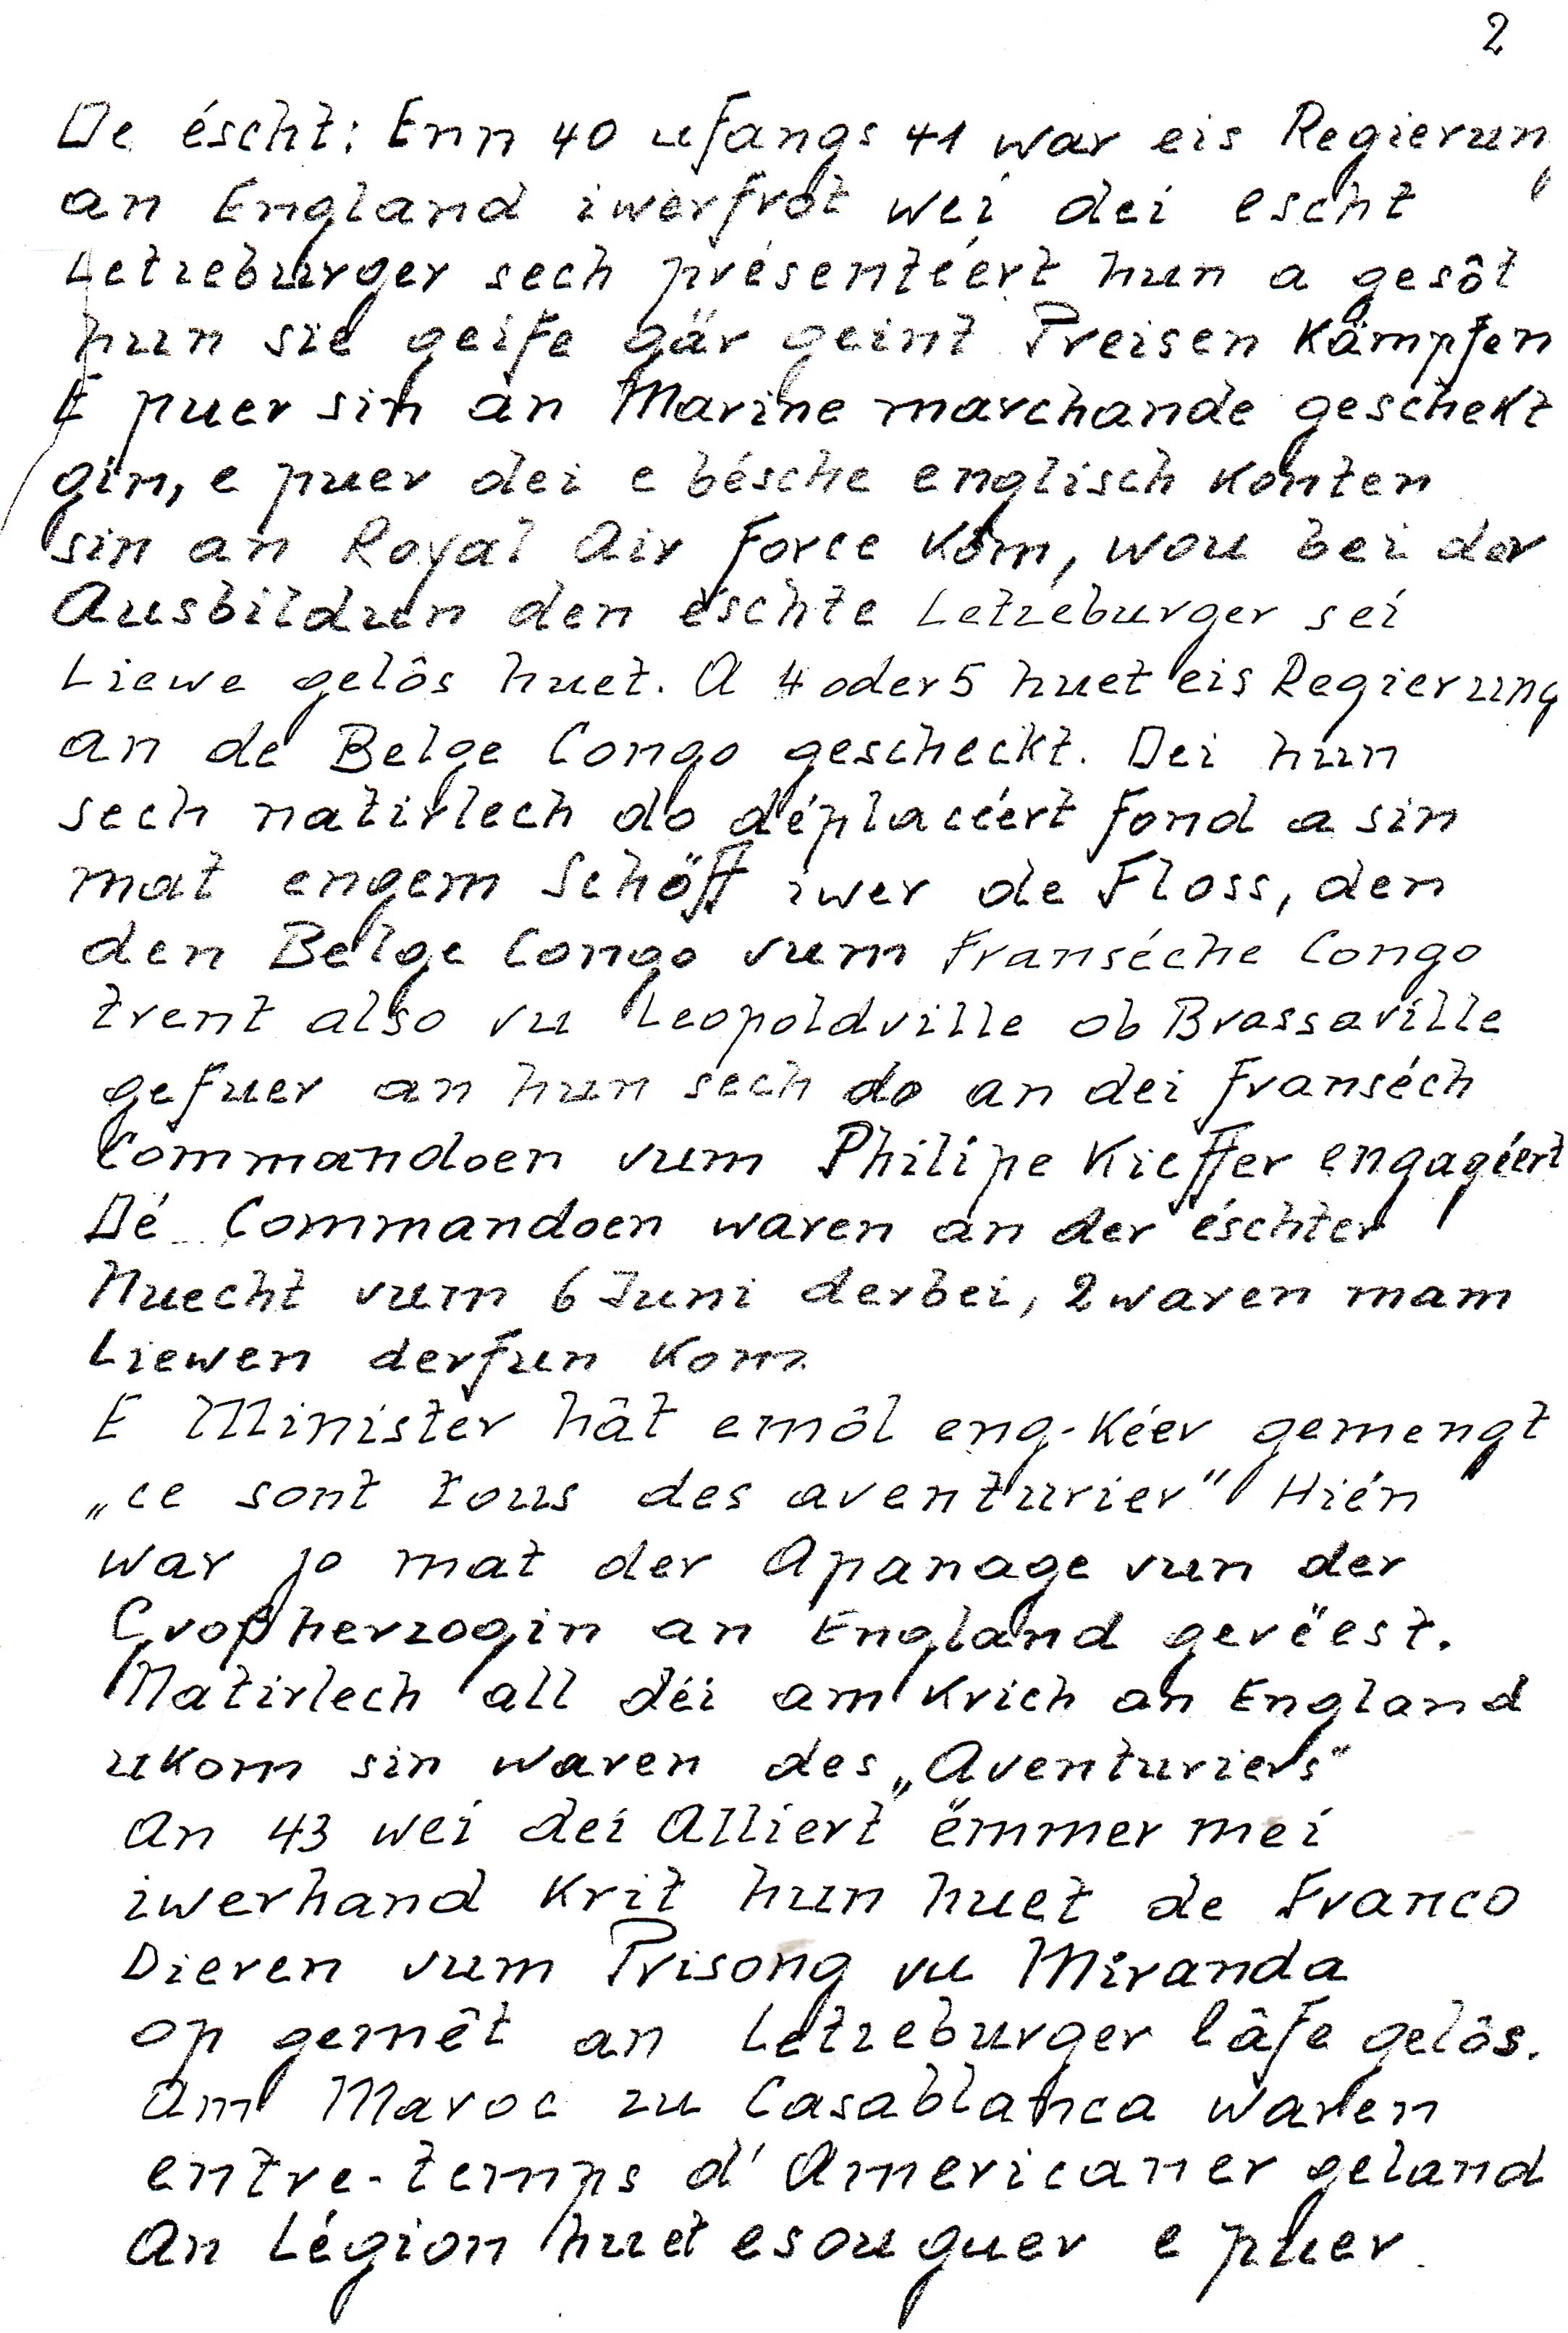 2
De éscht: Enn 40 ufangs 41 war eis Regierung
an England iwerfrôt wei dei escht
Letzeburger sech présentéert hun a gesôt
hun sie geife gär geint Preisen Kämpfen
E puer sin an Marine marchande geschekt
gin, e puer dei e bésche englisch Konten
sin an Royal Air Force Kom, wou bei der
Ausbildun den eschte Letzeburger sei
Liewe gelôs huet. A 4 oder 5 huet eis Regierung
an de Belge Congo gescheckt. Dei hun
sech natirlech do déplacéert fond a sin
mat engem Schöff iwer de Floss, den
den Belge Congo vum Franséche Congo
trent also vu Leopoldville ob Brassaville
gefuer an hun sech do an dei franséch
Commandoen vum Philipe Kieffer engagéert
Dé Commandoen waren an der éschter
Nuecht vum 6 Juni derbei, 2 waren mam
Liewen derfun Kom
E Minister hât emôl eng-Kéer gemengt
„ce sont tous des aventurier" Hién
war jo mat der Apanage vun der
Großherzogin an England gerëest.
Natirlech all déi am Krich an England
ukom sin waren des „Aventuriers"
An 43 wei dei Alliert ëmmer mei
iwerhand Krit hun huet de Franco
Dieren vum Prisong vu Miranda
op gemêt an Letzeburger lâfe gelôs.
Am Maroc zu Casablanca waren
entre-temps d' Americaner geland
An Légion huet esouguer e puer.